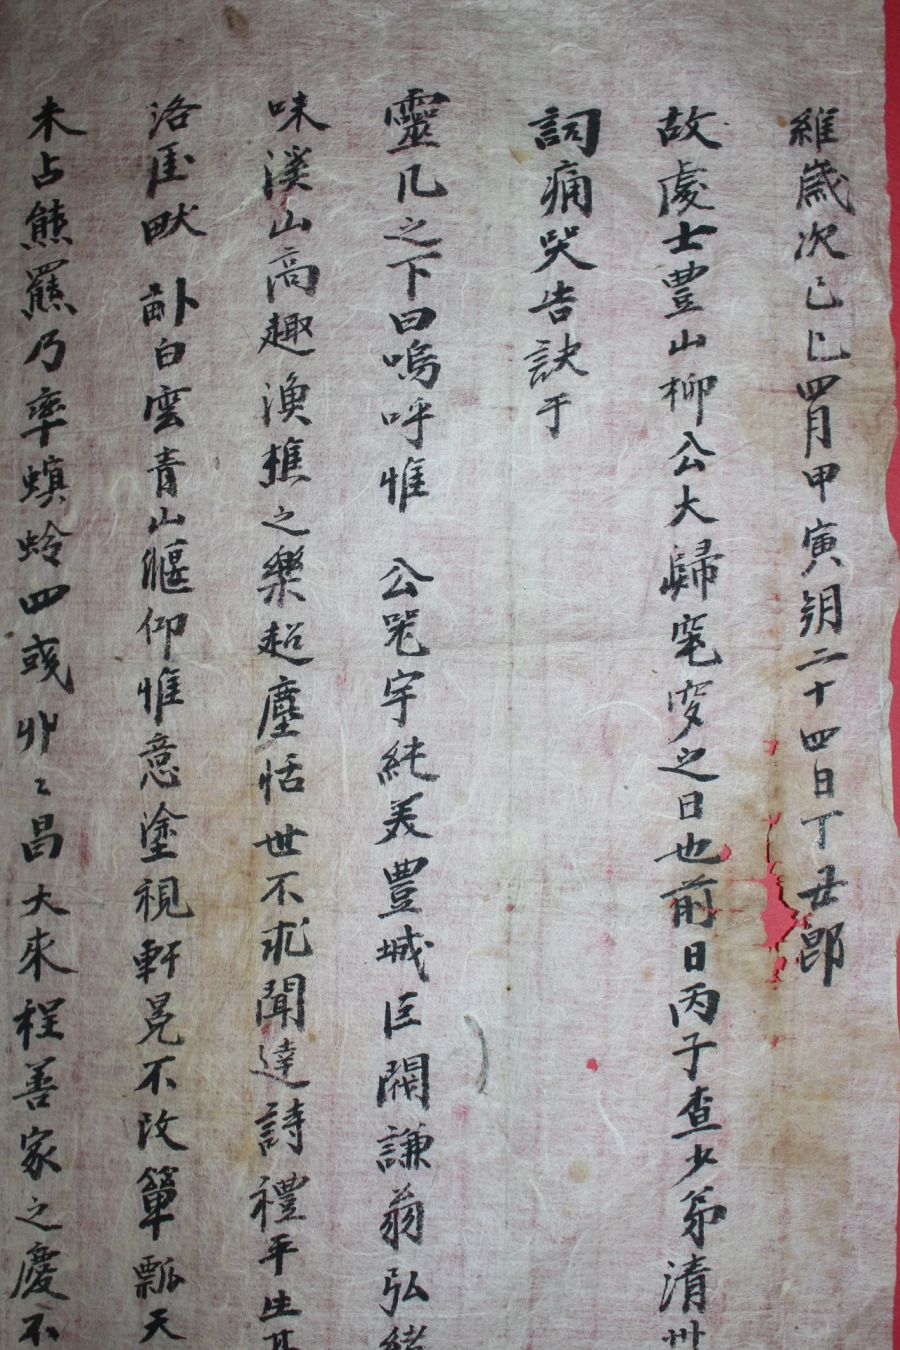 維歲次己巳四月甲寅朔二十四日丁丑卽
故處士豊山柳公大歸窀穸之日也前日丙子査少弟清州
詞痛哭告訣于
靈几之下曰嗚呼惟 公器宇純美豊城巨閥謙翁弘緖
味溪山高趣漁樵之樂超塵恬世不求聞達詩禮平生其
洛厓畎畝白雲青山偃仰惟意塗視軒冕不改簞瓢天
未占熊羆乃率螟蛉四彧丱〻昌大來程善家之慶不